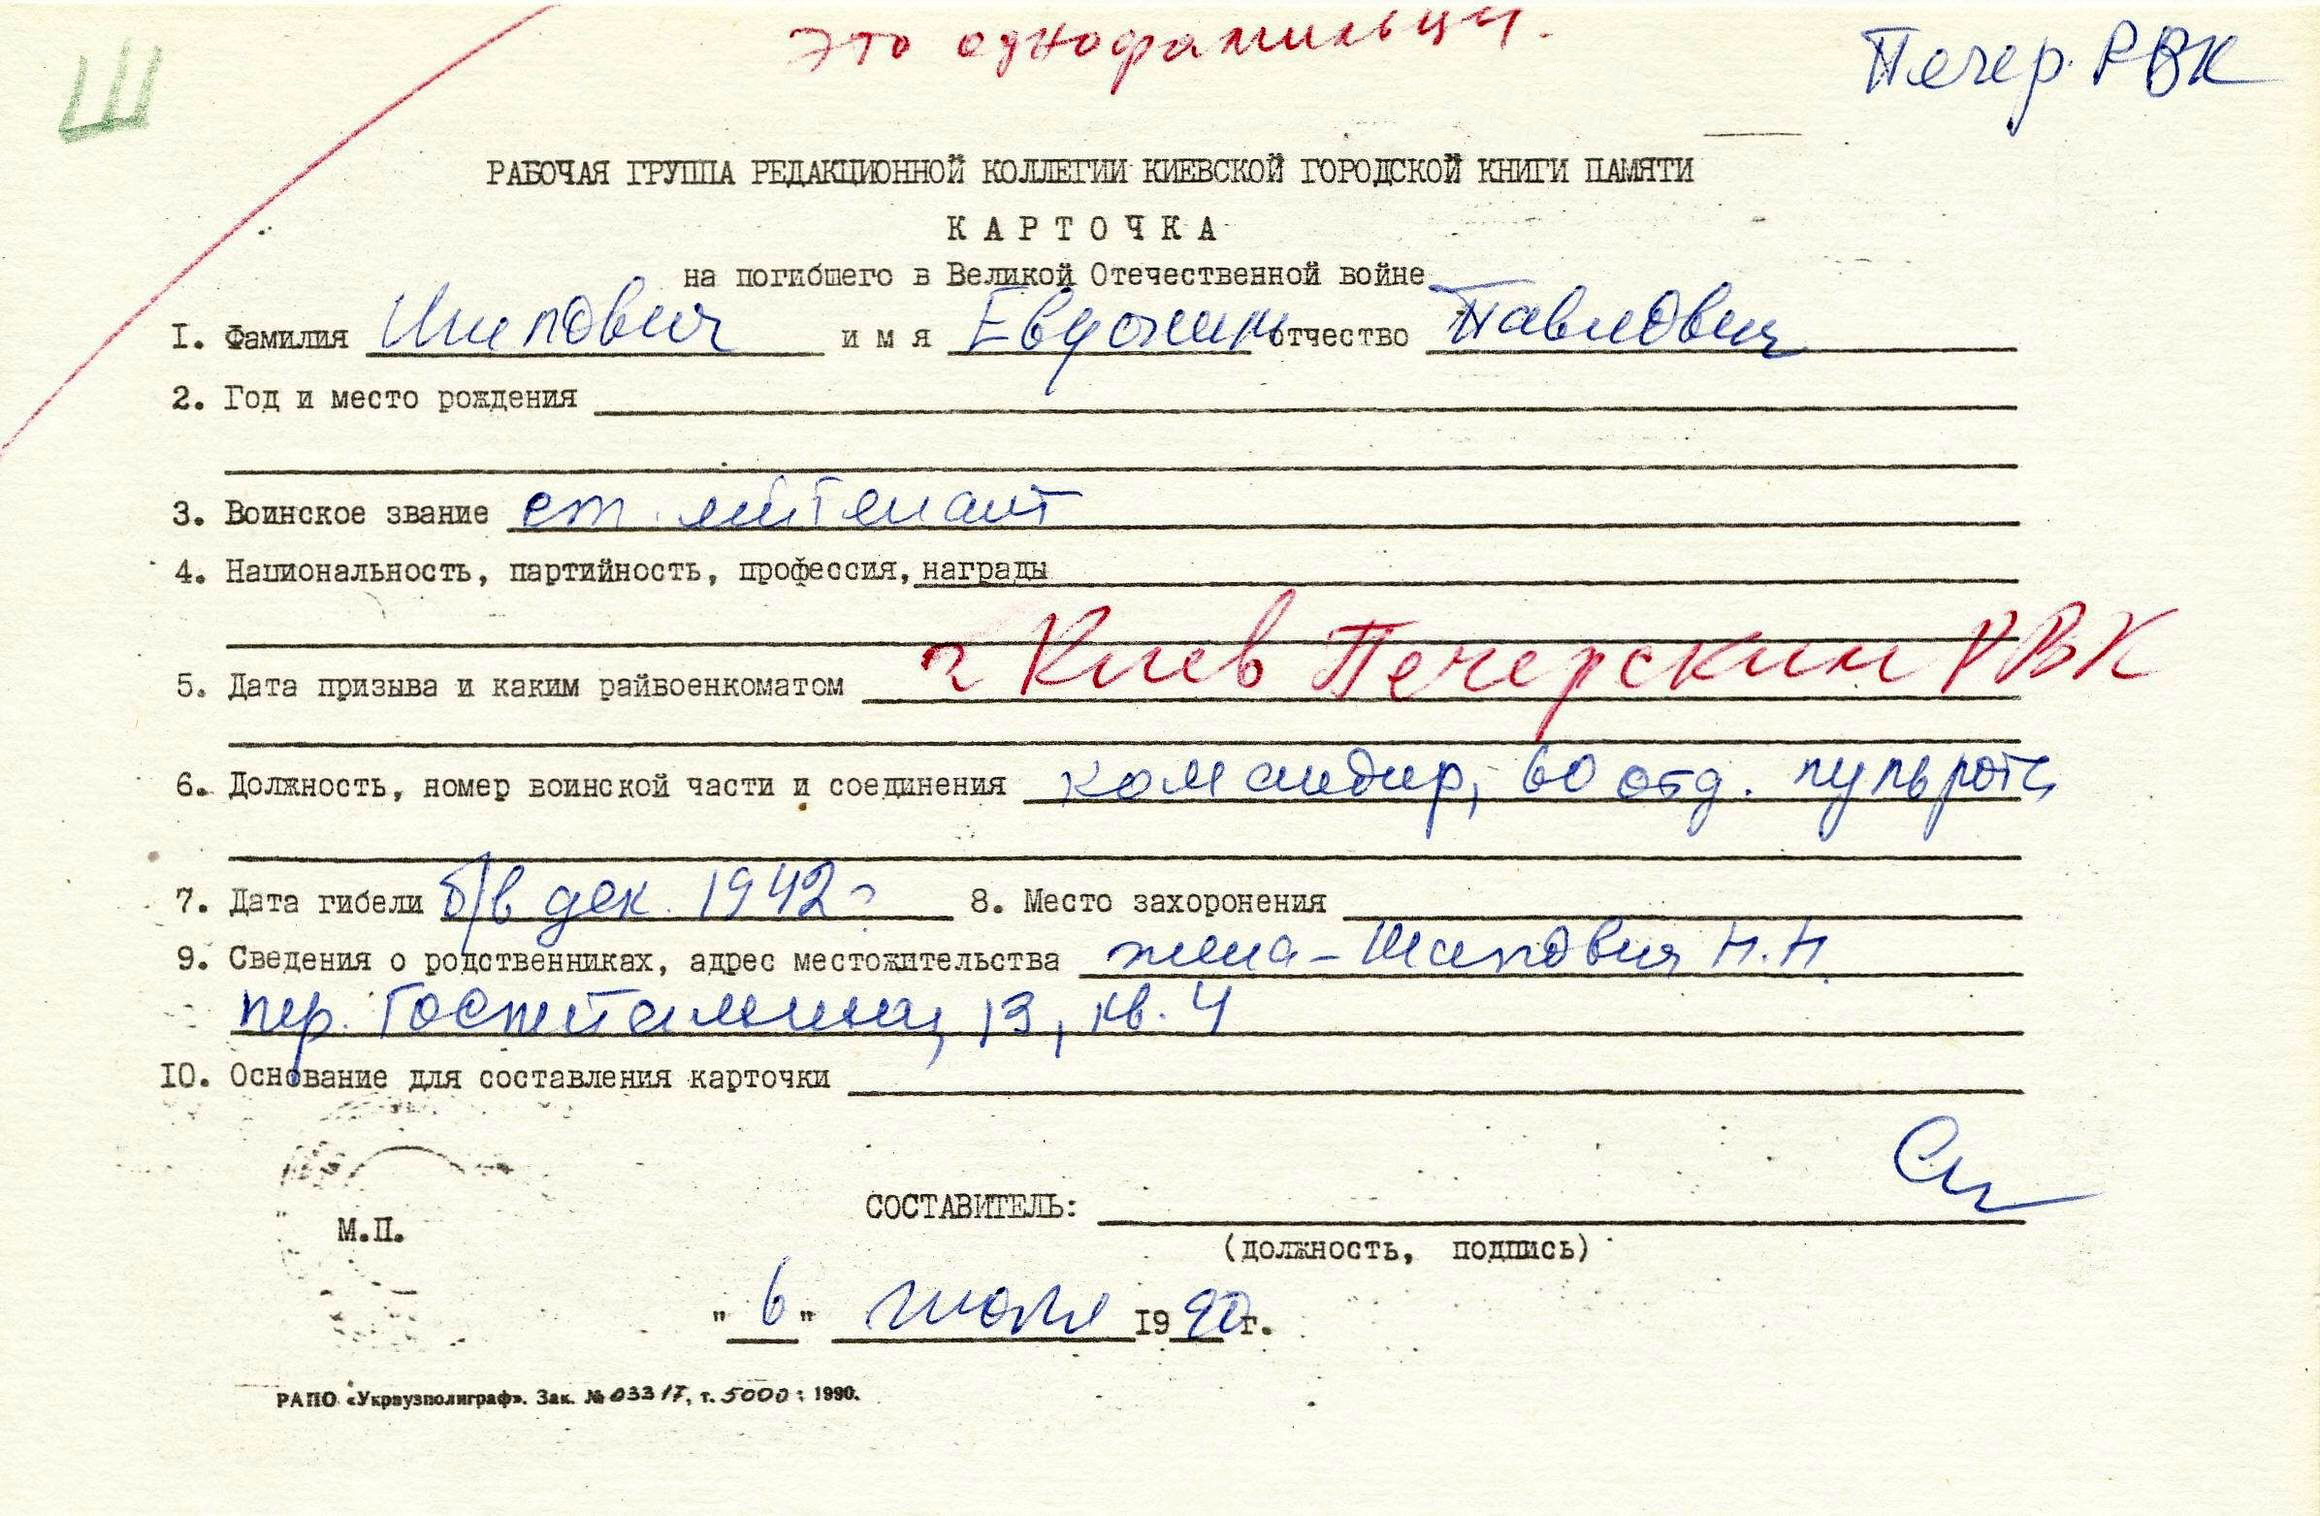 это однофамильцы.
Ш
Печер. РВК
РАБОЧАЯ ГРУППА РЕДАКЦИОННОЙ КОЛЛЕГИИ КИЕВСКОЙ ГОРОДСКОЙ КНИГИ ПАМЯТИ
КАРТОЧКА
на погибшего в Великой Отечественной войне
I. Фамилия Шипович имя Евдоким отчество Павлович
2. Год и место рождения
3. Воинское звание ст. лейтенант
4. Национальность, партийность, профессия, награды
5. Дата призыва и каким райвоенкоматом г Киев Печерским РВК
6. Должность, номер воинской части и соединения командир, 60 отд. пульроты
7. Дата гибели б/в дек. 1942 г 8. Место захоронения
9. Сведения о родственниках, адрес местожительства жена - Шипович Н.Н.
пер. Госпитальный, 13, кв. 4
IO. Основание для составления карточки
М.П.
СОСТАВИТЕЛЬ:
(должность, подпись)
"6" июля 1990 г.
РАПО «Укрвузполиграф». Зак. № 03317, т. 5000: 1990.